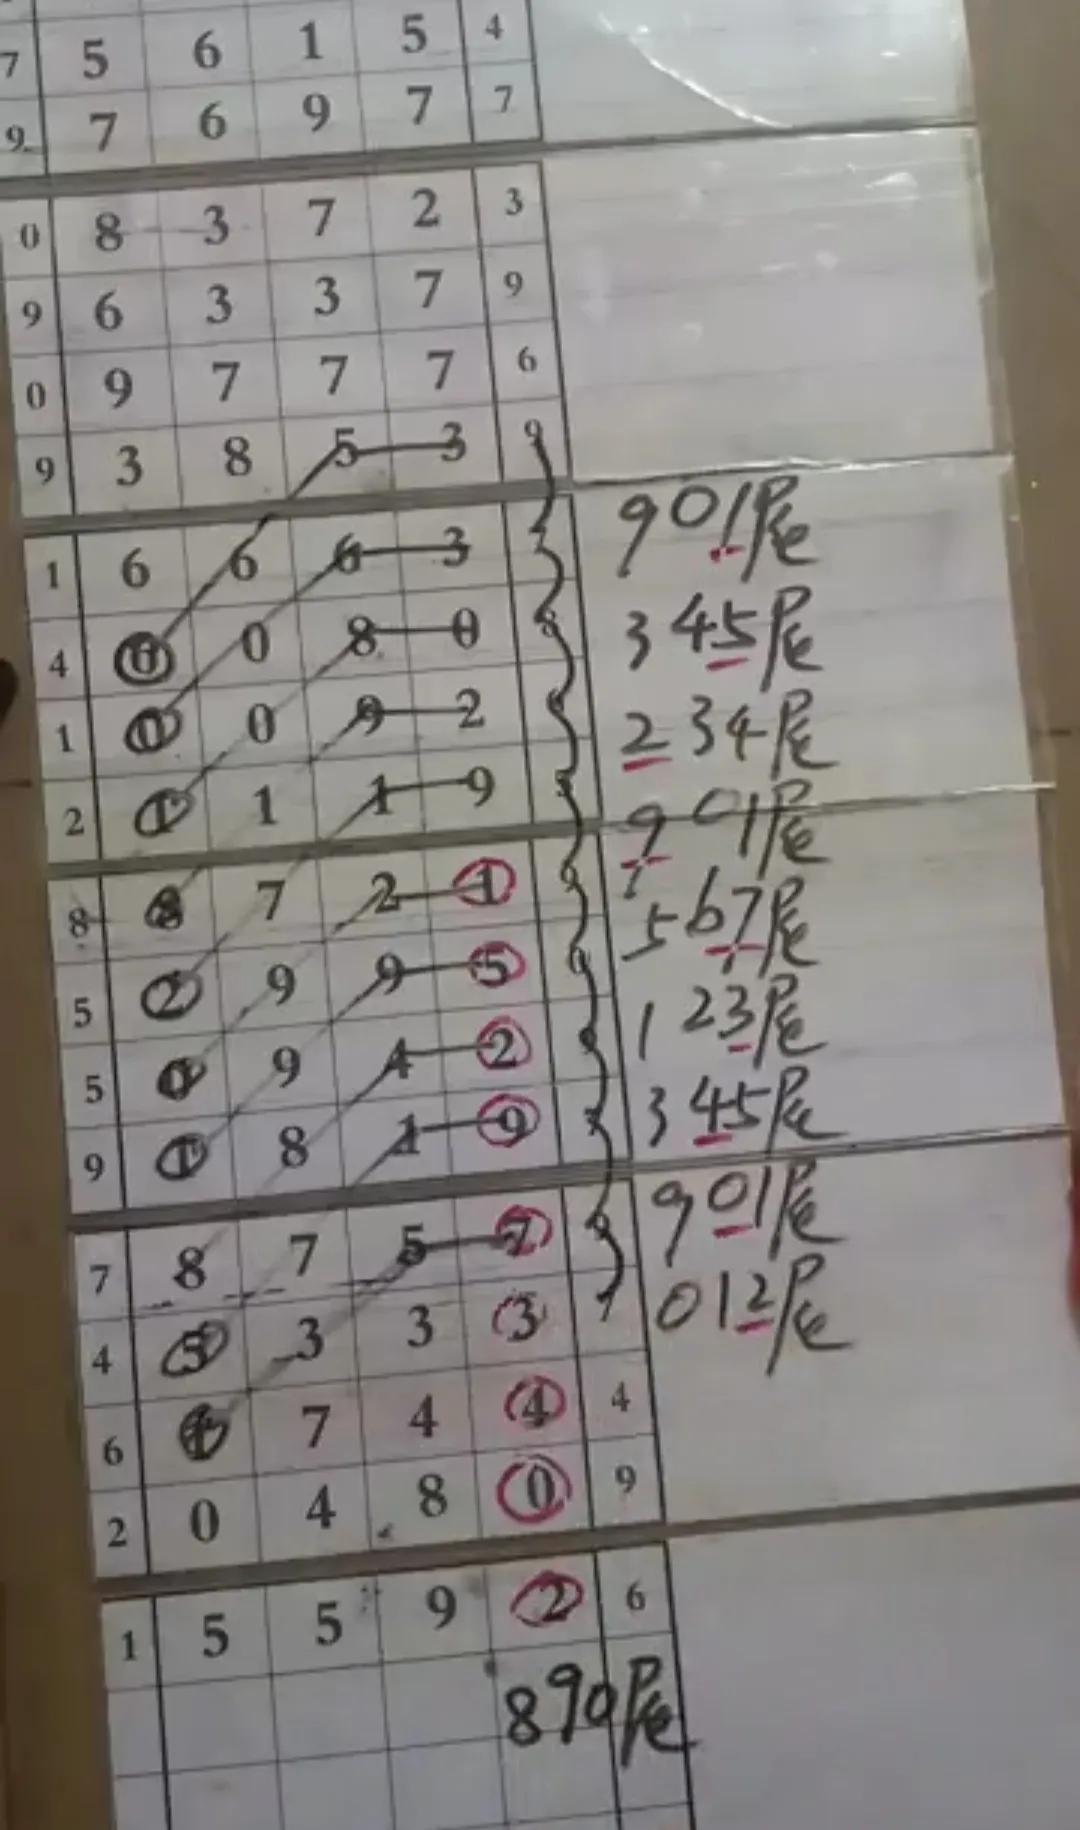 7 5 6 1 5 4
9 7 6 9 7 7
0 8 3 7 2 3
9 6 3 3 7 9
0 9 7 7 7 6
9 3 8 5 3 9
1 6 6 6 3 901尾
4 0 0 8 0 8 345尾
1 0 0 9 2 234尾
2 1 1 1 9 901尾
8 8 7 2 1 567尾
5 2 9 9 5 123尾
5 9 4 2 345尾
9 1 8 1 9
7 8 7 5 7 901尾
4 5 3 3 3 012尾
6 7 4 4 4
2 0 4 8 0 9
1 5 5 9 2 6
890尾